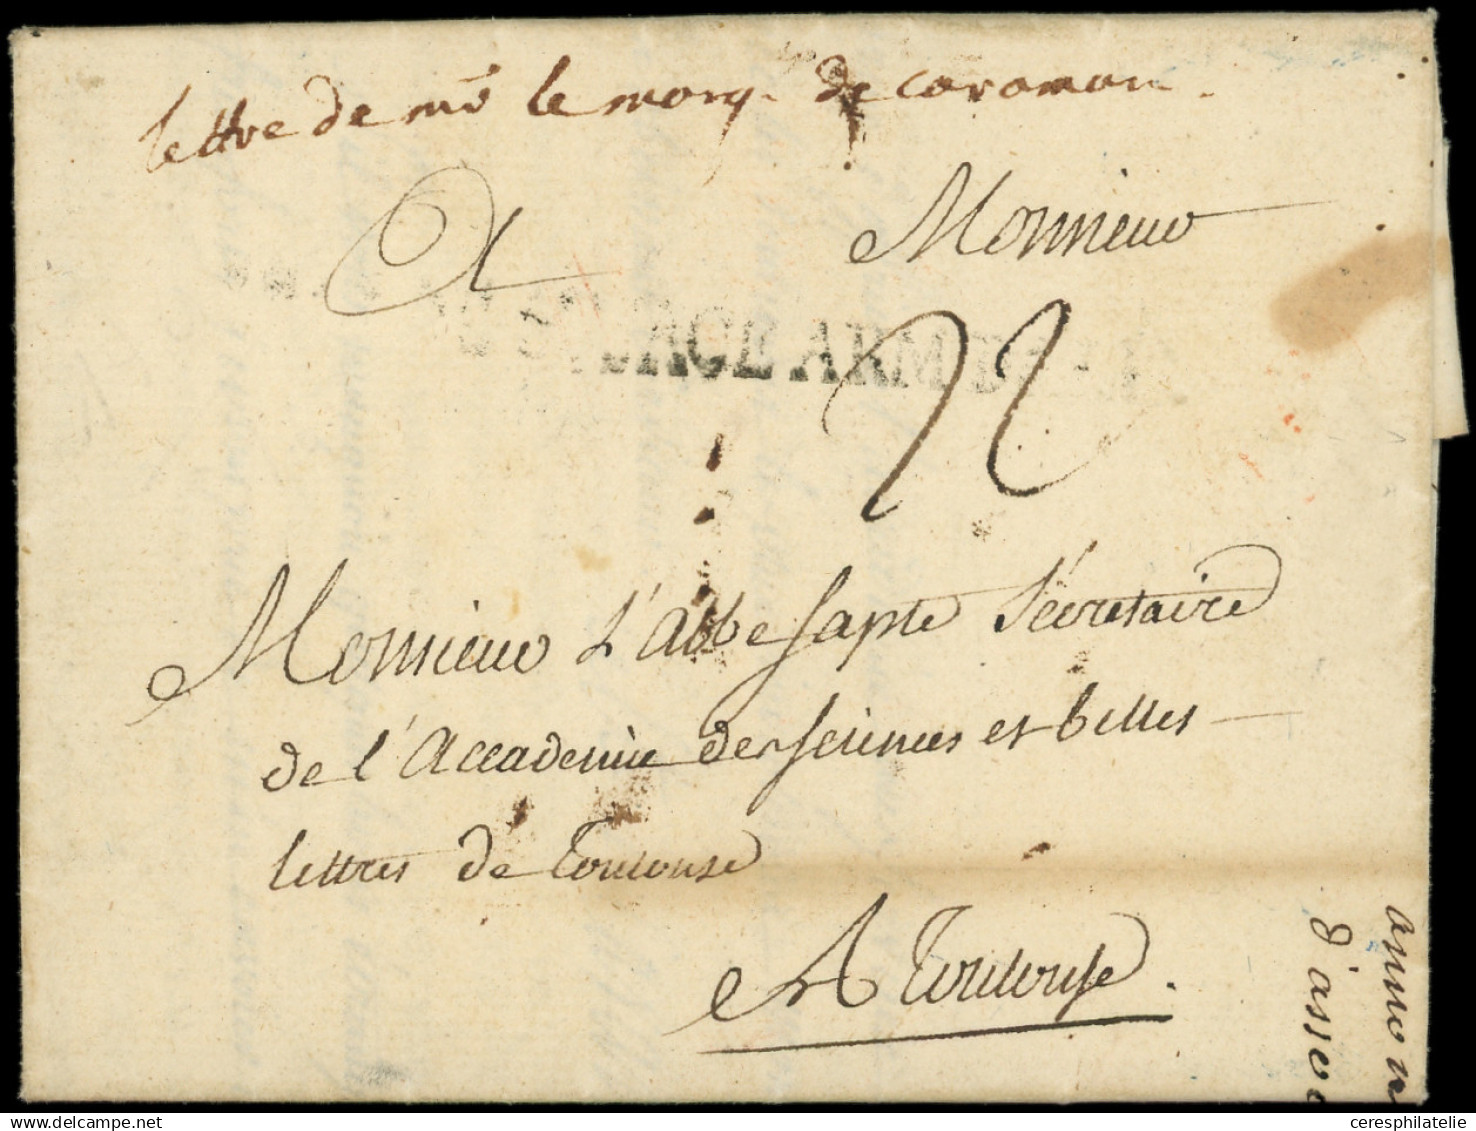 lettre de mr le marq. de caraman.
A
Monsieur
ARM
22
Monsieur L'abbe Sapte Sécretaire
de l'Accademie des Sciences et belles
lettres de Toulouse
A Toulouse.
d'asse
ceresphilatelie